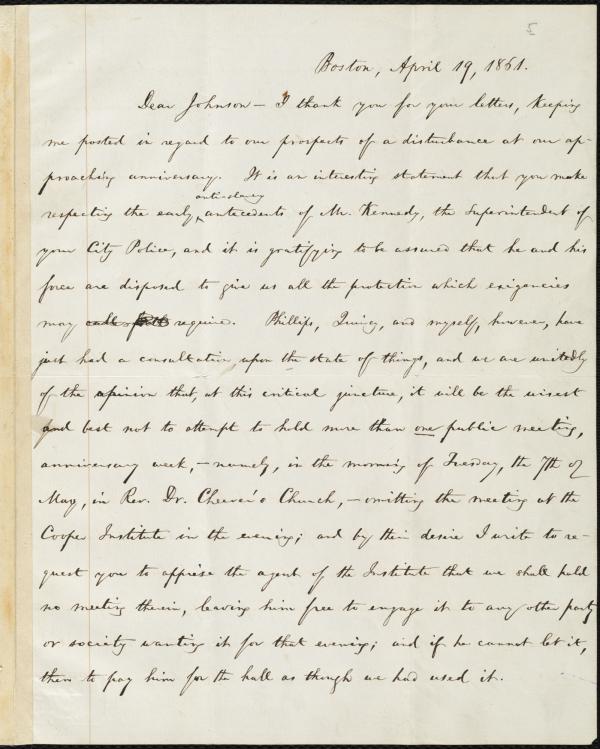 5
Boston, April 19, 1861.
Dear Johnson – I thank you for your letters, keeping
me posted in regard to our prospects of a disturbance at our ap-
proaching anniversary. It is an interesting statement that you make
anti-slavery
respecting the early antecedents of Mr. Kennedy, the Superintendent of
your City Police, and it is gratifying to be assured that he and his
force are disposed to give us all the protection which exigencies
may call forth require. Phillips, Quincy, and myself, however, have
just had a consultation upon the state of things, and we are unitedly
of the opinion that, at this critical juncture, it will be the wisest
and best not to attempt to hold more than one public meeting,
anniversary week, – namely, in the morning of Tuesday, the 7th of
May, in Rev. Dr. Cheever's Church, – omitting the meeting at the
Cooper Institute in the evening; and by their desire I write to re-
quest you to apprise the agent of the Institute that we shall hold
no meeting therein, leaving him free to engage it to any other party
or society wanting it for that evening; and if he cannot let it,
then to pay him for the hall as though we had used it.